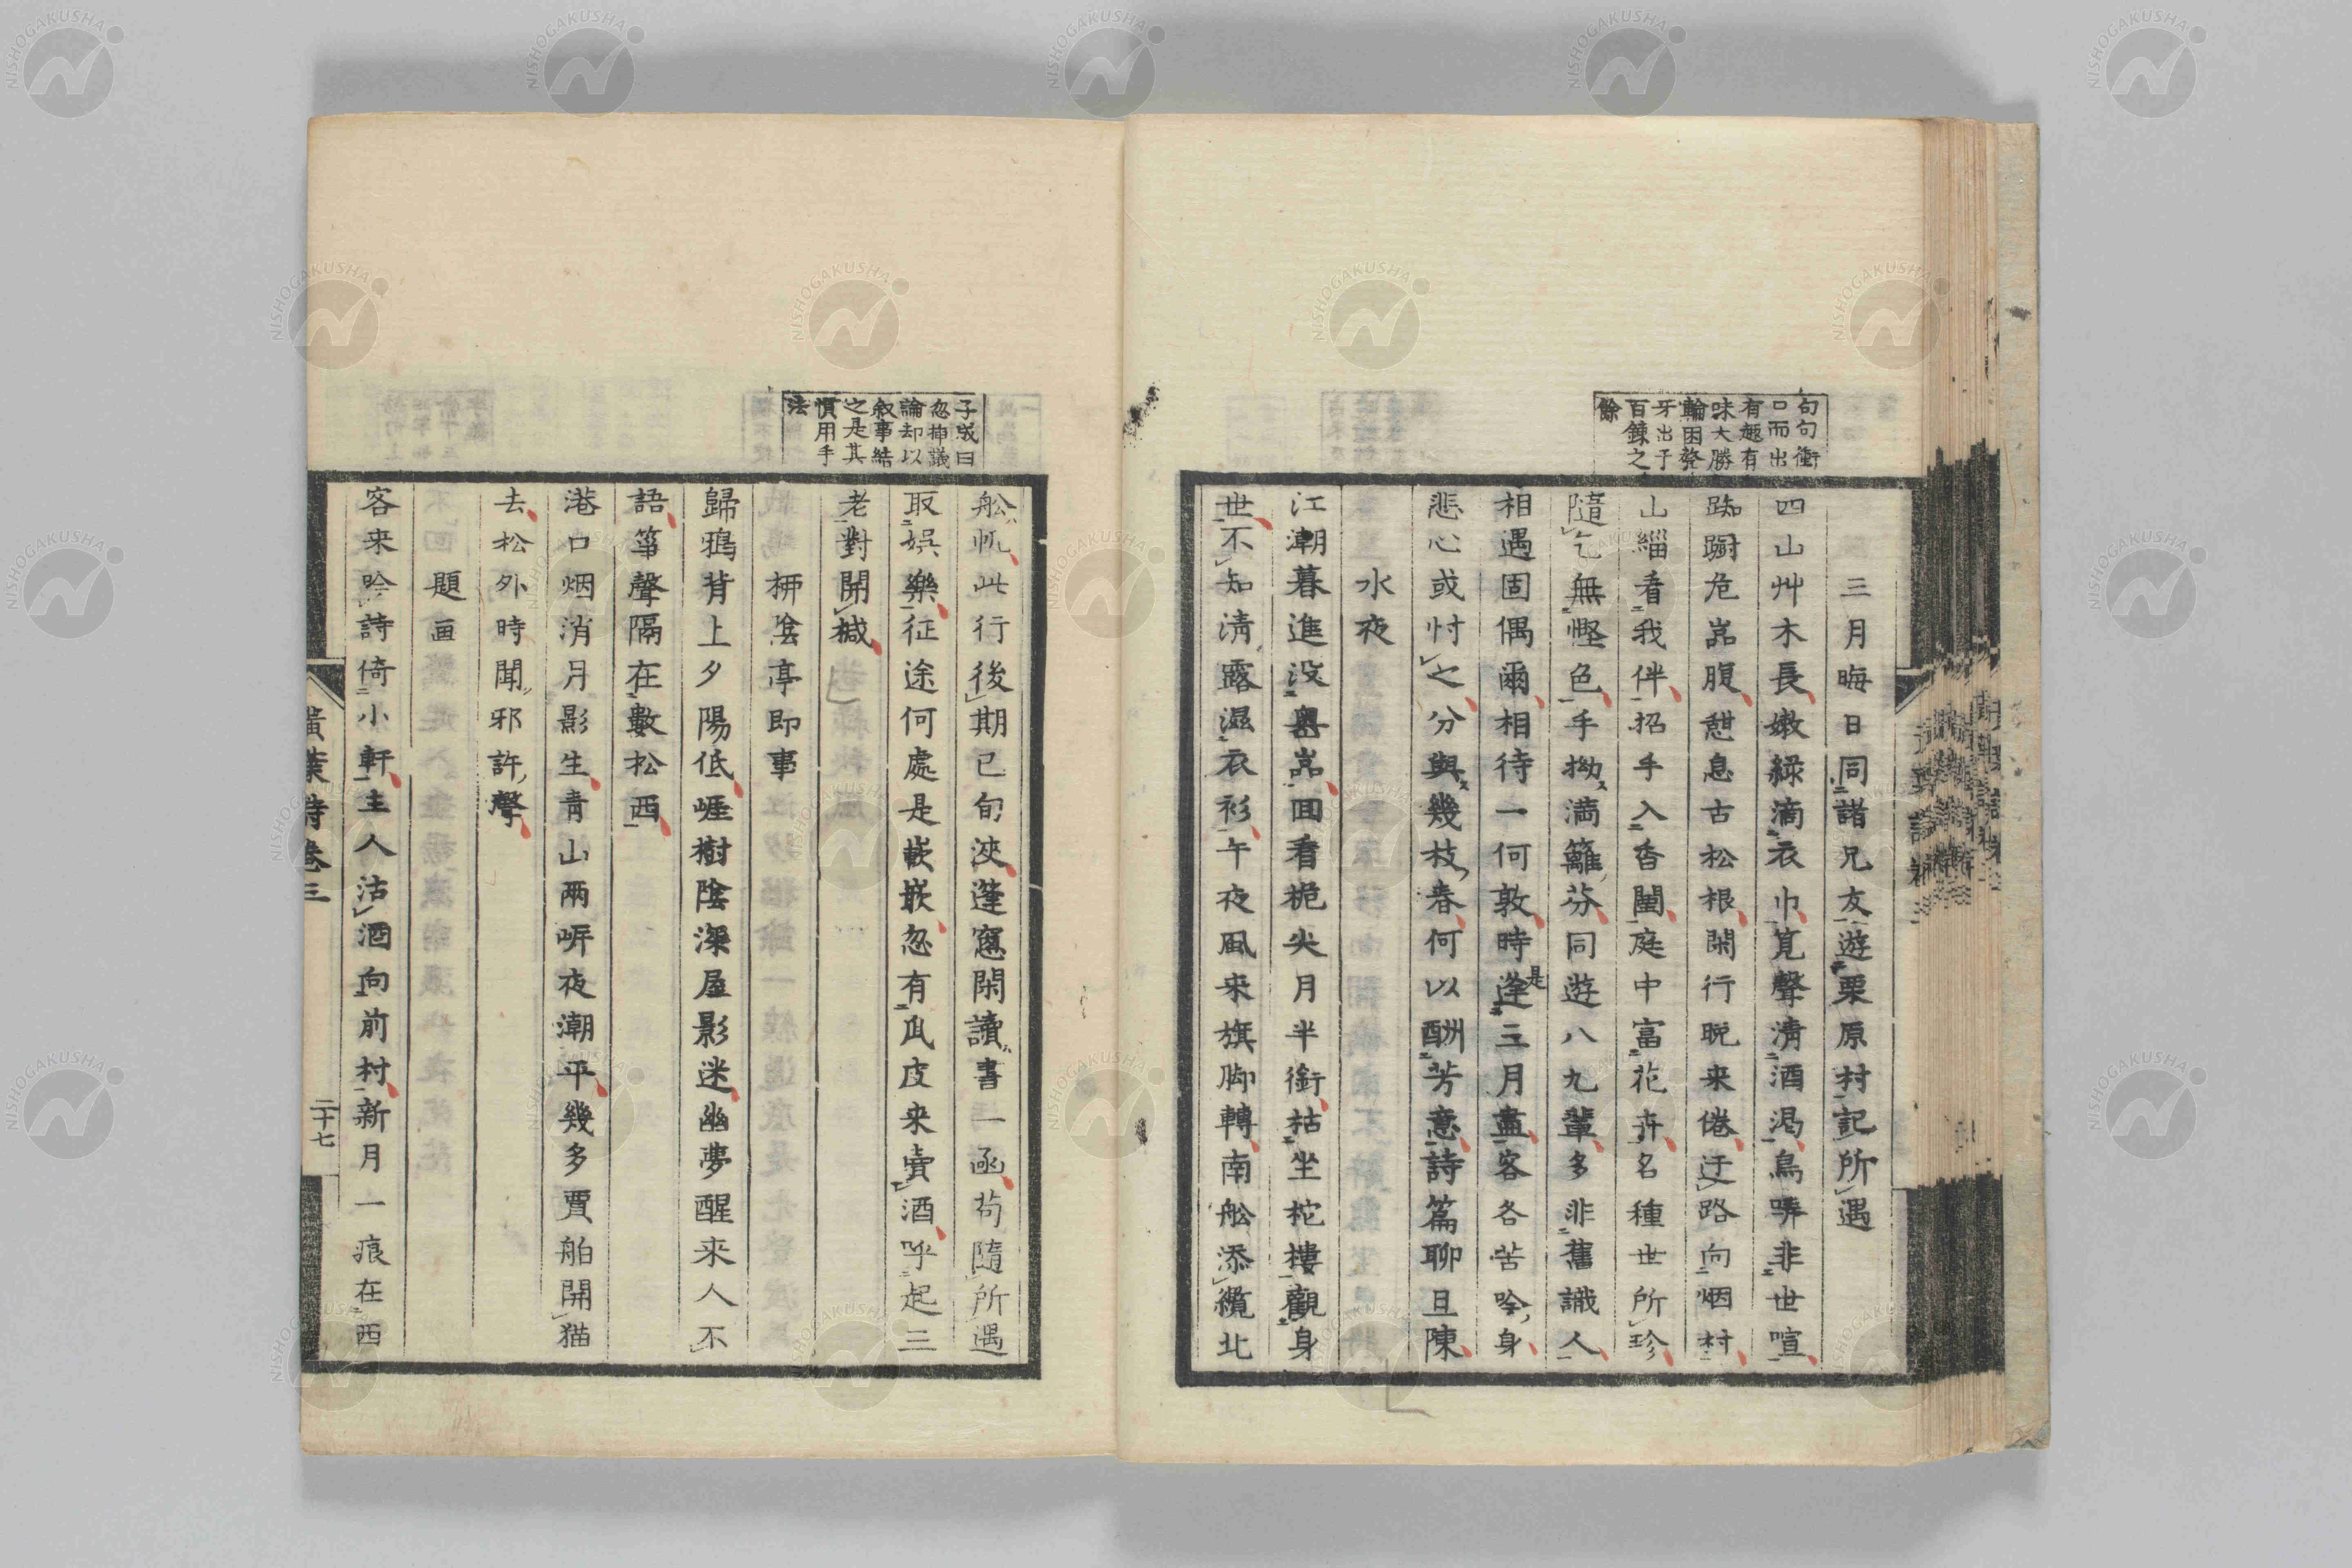 句句衝
口而出
有趣有
味大勝
輪囷發
牙出于
百錬之
餘
三月晦日同諸兄友遊栗原村記所遇
四山艸木長嫩綠滴衣巾筧聲淸酒渇鳥哢非世喧
踟蹰危嵓腹憩息古松根閑行晩来倦迂路向烟村
山緇看我伴招手入香闉庭中富花卉名種世所珍
隨乞無慳色手拗満籬芬同遊八九輩多非舊識人
相遇固偶爾相待一何敦時逢三月盡客各苦吟身
是
悲心或忖之分與幾枝春何以酬芳意詩篇聊且陳
水夜
江潮暮進没輿嵓回看桅尖月半銜枯坐柁樓觀身
世不知淸露濕衣衫午夜風来旗脚轉南舩添纜北
子成曰
忽挿議
論却以
敘事結
之是其
慣用手
法
舩帆此行後期已旬浹蓬窻閑讀書一函苟隨所遇
取娯樂征途何處是嶔嵌忽有瓜皮来賣酒呼起三
老對開椷
栁陰亭即事
歸鴉背上夕陽低崕樹陰深屋影迷幽夢醒来人不
語箏聲隔在數松西
港口烟消月影生青山兩岍夜潮平幾多賈舶開猫
去松外時聞邪許聲
題画
客来吟詩倚小軒主人沽酒向前村新月一痕在西
黄葉詩卷三
二十七
NISHOGAKUSHA